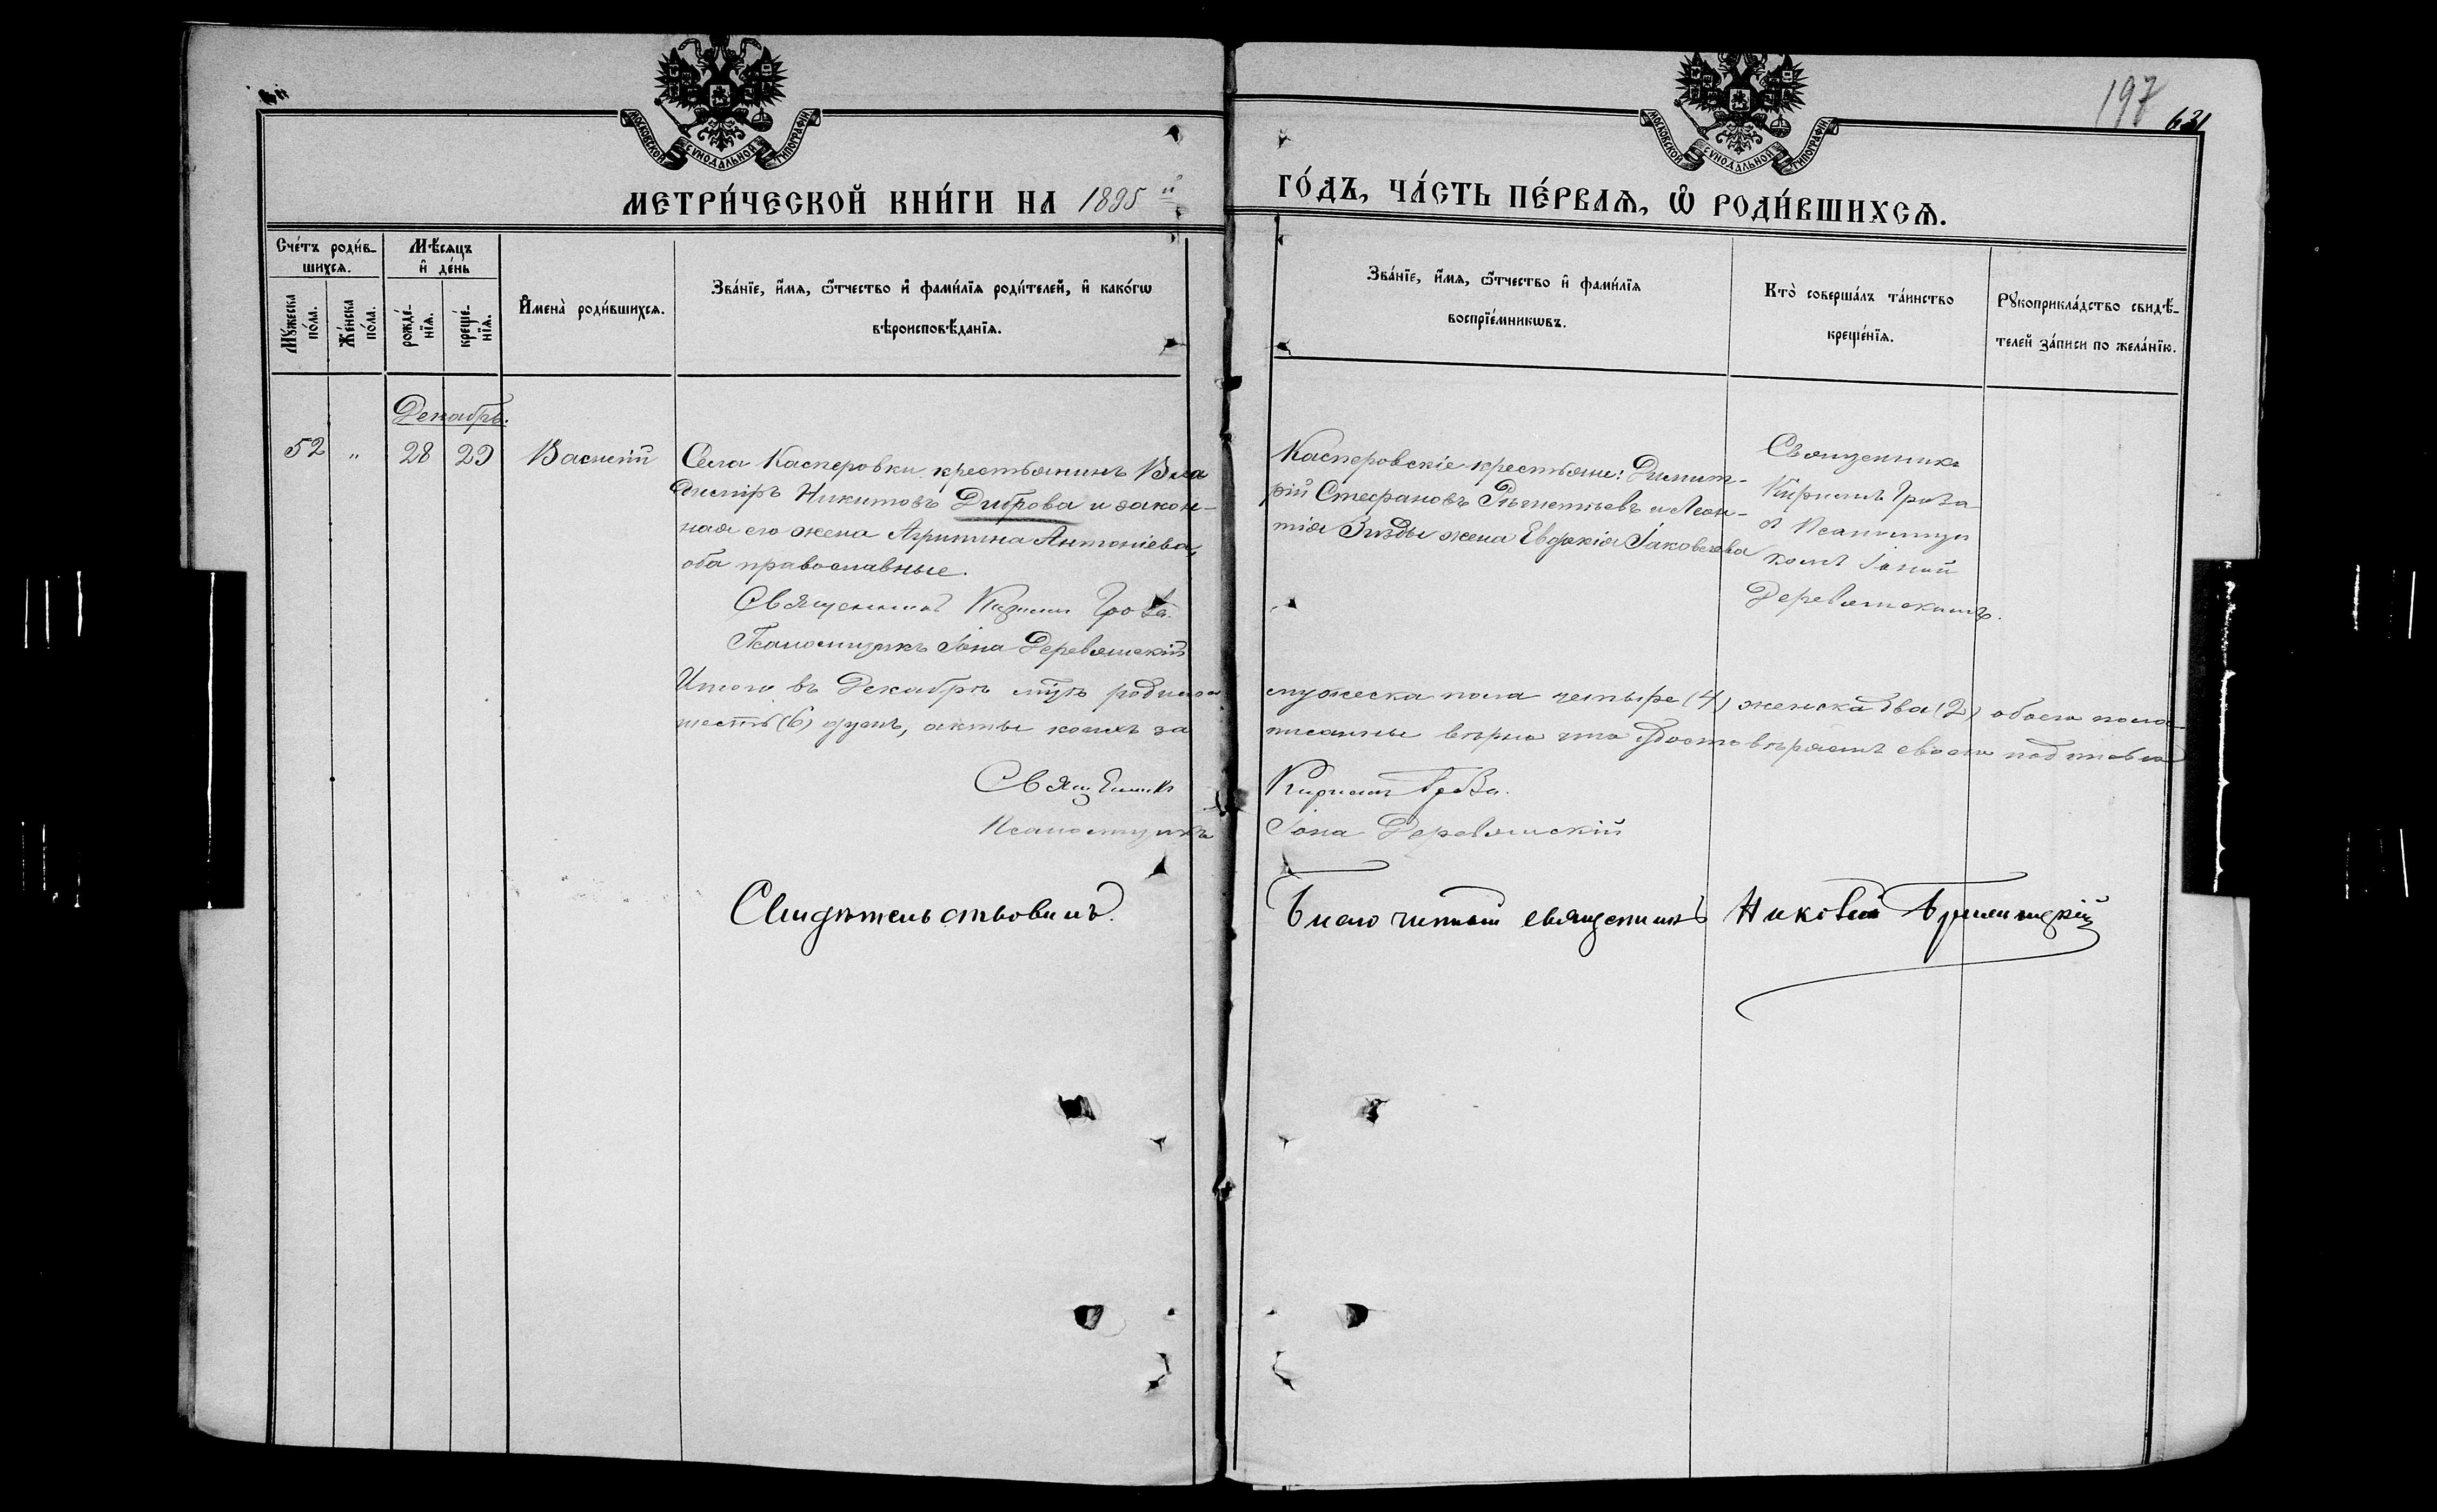 МОСКОВСКОЙ СѴНОДАЛЬНОЙ ТИПОГРАФІИ
МОСКОВСКОЙ СѴНОДАЛЬНОЙ ТИПОГРАФІИ
197
631
МЕТРИ́ЧЕСКОЙ КНИ́ГИ НА 1895 й
ГО́ДЪ, ЧА́СТЬ ПЕ́РВАѦ, Ѡ҆ РОДИ́ВШИХСѦ.
Сче́тъ роди́в-
шихсѧ.
Мꙋ́жеска
по́ла.
Же́нска
по́ла.
Мѣ́сѧцъ
и҆ де́нь
рожде́-
нїѧ.
креще́-
нїѧ.
И҆мена̀ роди́вшихсѧ.
Зва́нїе, и҆́мѧ, ѻ҆́тчество и҆ фами́лїѧ роди́телей, и҆ како́гѡ
вѣроисповѣ́данїѧ.
Зва́нїе, и҆́мѧ, ѻ҆́тчество и҆ фами́лїѧ
воспрїе́мникѡвъ.
Кто̀ соверша́лъ та́инство
креще́нїѧ.
Рꙋкоприкла́дство свидѣ́-
телей за́писи по жела́нїю.
Декабрь.
52 " 28 29 Василій
Села Касперовки крестьянинъ Вла
димiръ Никитовъ Диброва и закон-
ная его жена Агрипина Антоніева,
оба православные.
Священникъ Кириллъ Гроза.
Псаломщикъ Іона Деревянскій
Касперовскіе крестьяне: Димит-
рій Стефановъ и Леон-
тія жена Евдокія Іаковлева
Священникъ
Кириллъ Гроза
съ Псаломщи
комъ Іоной
Деревянскимъ.
Итого въ Декабрѣ м-цѣ родилось
мужеска пола четыре (4) женска два (2) обоего пола
шесть (6) душъ, акты коихъ за
писанны вѣрно что удостовѣряемъ своею подписью
Священникъ Кириллъ Гроза.
Псаломщикъ Іона Деревянскій
Свидѣтельствовалъ.
Благочинный священникъ